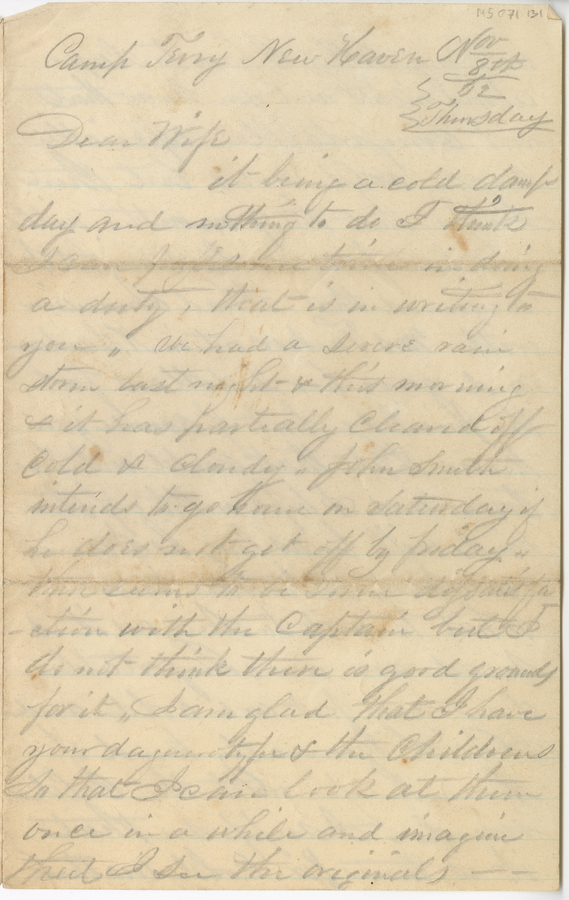 MS 071 131
Camp Terry New Haven Nov
8th
/62
Thursday
Dear Wife
it being a cold damp
day and nothing to do I think
I can pass in doing
a duty, that is in writing to
you " We had a severe rain
storm last night & this morning
& it has partially cleared off
Cold & Cloudy " John Smith
intends to go home on Saturday if
he does not get off by friday "
there seems to be some dissatisfa
-ction with the Captain but I
do not think there is good grounds
for it " I am glad that I have
your daguerrotype & the Childrens
So that I can look at them
once in a while and imagine
that I see the originals — —